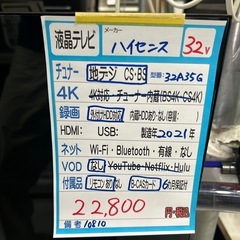 液晶テレビ メーカー ハイセンス 32V
チュナー 地デジ CS・BS 型番: 32A35G
4K 4K対応・チューナー内蔵(BS4K・CS4K)
録画 外付けHDDあり 内蔵HDDあり・なし(容量: )
HDMI: USB: 製造年2021年
ネット Wi-Fi・Bluetooth・有線・なし
VOD なし YouTube・Netflix・Hulu
付属品 リモコンありなし B-CASカード 6ヵ月保証付
22,800 円・税込
備考/0810